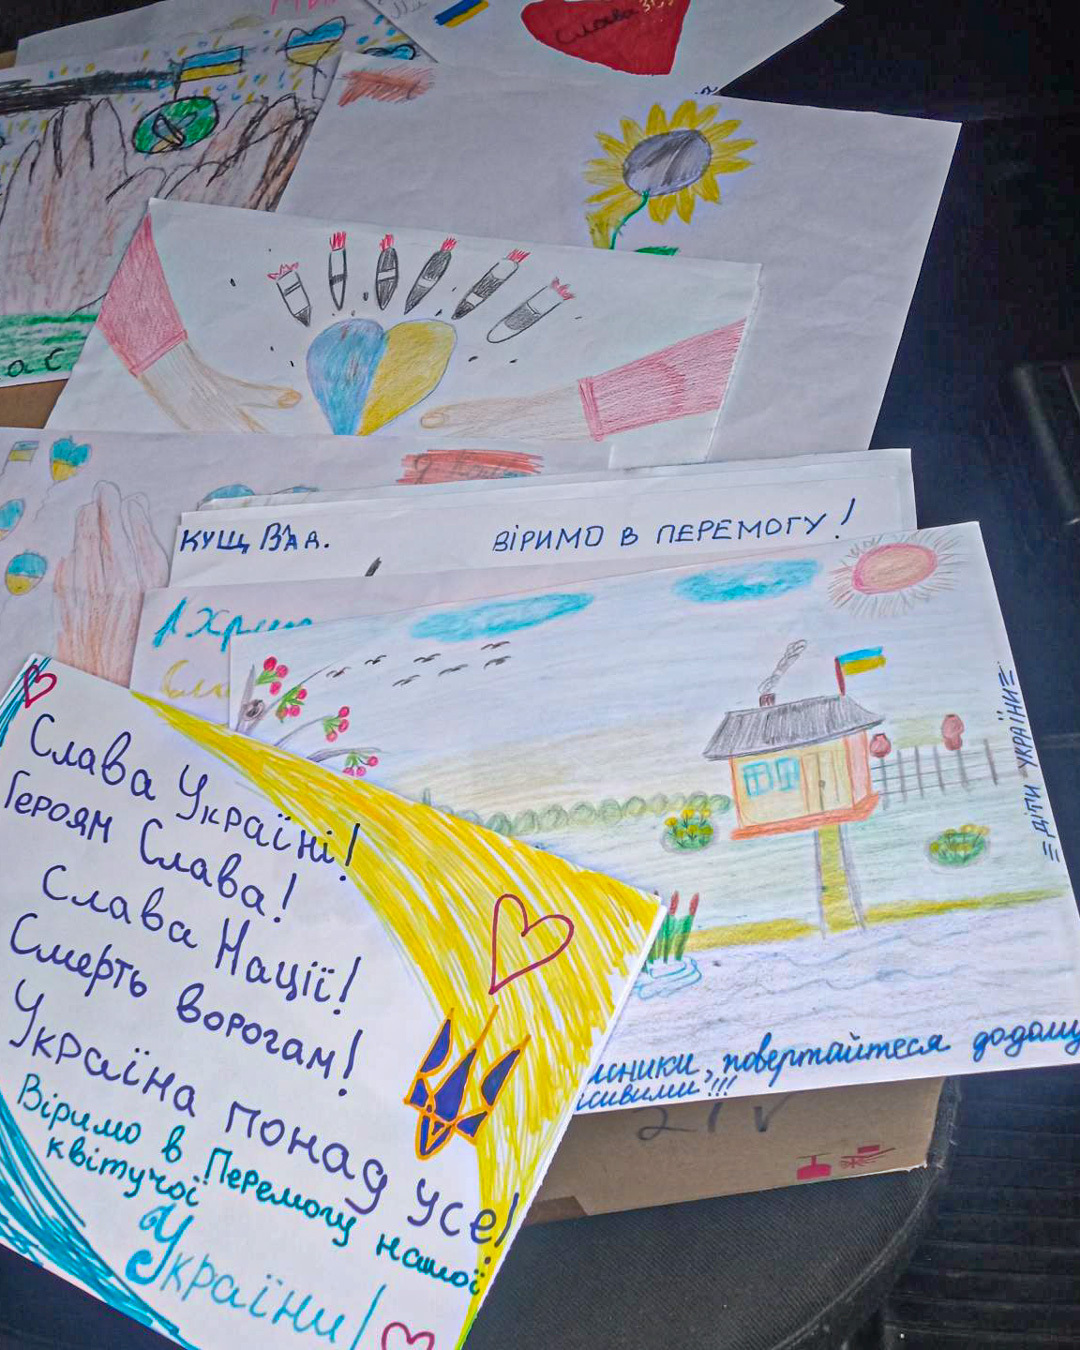 Слава
КУЩ ВЛАД.
ВІРИМО В ПЕРЕМОГУ!
ДІТИ УКРАЇНИ
повертайтеся додому
Слава Україні!
Героям Слава!
Слава Нації!
Смерть ворогам!
Україна понад усе!
Віримо в Перемогу нашої
квітучої
України!